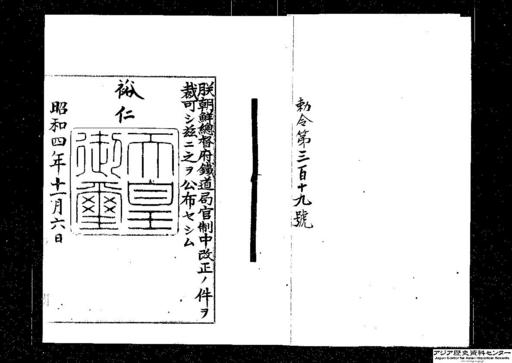 勅令第三百十九號
朕朝鮮總督府鐵道局官制中改正ノ件ヲ
裁可シ茲ニ之ヲ公布セシム
裕仁
天皇
御璽
昭和四年十一月六日
アジア歴史資料センター
Japan Center for Asian Historical Records